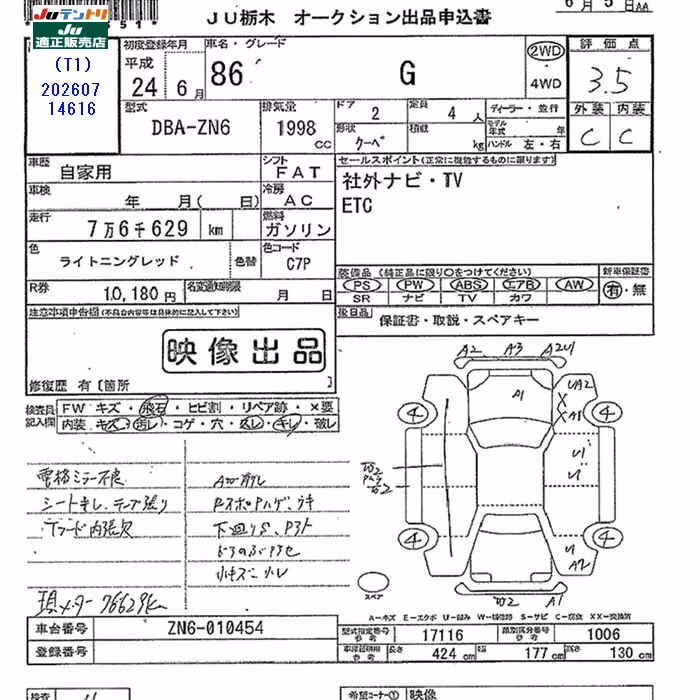 JU テントリ
JU
適正販売店
(T1)
202607
14616
JU栃木 オークション出品申込書
6月5日AA
初度登録年月
平成
24 6月
車名・グレード
86 G
2WD
4WD
評価点
3.5
外装 内装
C C
型式
DBA-ZN6
排気量
1998 CC
ドア
2
定員
4 人
形状
クーペ
積載
kg
ディーラー・並行
モデル年式 年
ハンドル 左・右
車歴
自家用
シフト
FAT
車検
年 月( 日)
冷房
AC
走行
7万6千629 km
燃料
ガソリン
色
ライトニングレッド
色替
色コード
C7P
R券
10,180円
名変通知期限
月 日
セールスポイント(正常に機能するものに限ります)
社外ナビ・TV
ETC
装備品 (純正品に限り○をつけてください)
PS PW ABS エアB AW
SR ナビ TV カワ
新車保証書
有・無
後日品
保証書・取説・スペアキー
注意事項申告欄(不具合内容等は具体的に記入して下さい)
映像出品
修復歴 有〔箇所 〕
検査員記入欄
FW キズ・飛石・ヒビ割・リペア跡・×要
内装 キズ・汚レ・コゲ・穴・スレ・キレ・破レ
電格ミラー不良
シートキレ、テープ張り
現メーター76629km
下廻りS、
小キズ
A2 A3 A2U1
A1
UA2
X
X A1
U1
U1
U
A2
W2
W2
W2 A1
4 4
4 4
スペア
A-キズ E-エクボ U-凹み W-補修跡 S-サビ C-腐食 XX-交換済
車台番号 ZN6-010454
登録番号
型式指定番号 17116 類別区分番号 1006
長さ 424 cm 幅 177 cm 高さ 130 cm
検査
希望コーナー① 映像